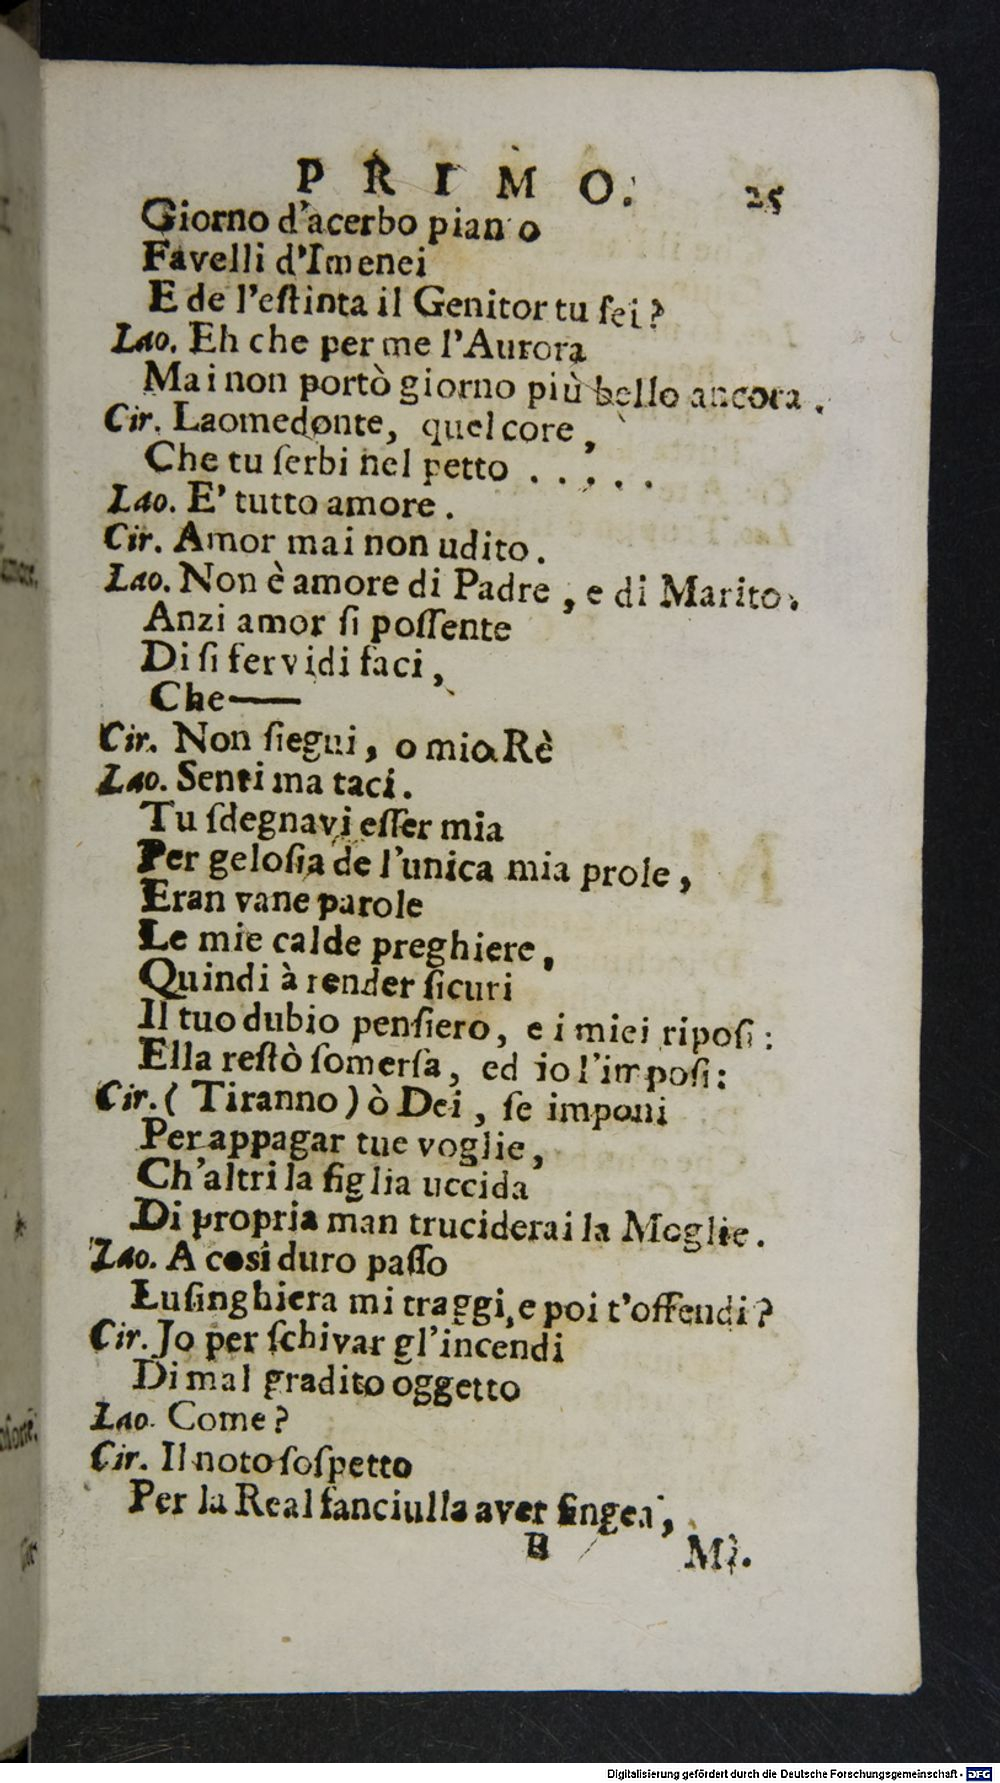 PRIMO. 25
Giorno d'acerbo pian o
Favelli d'Imenei
E de l'eſtinta il Genitor tu ſei?
Lao. Eh che per me l'Aurora
Mai non portò giorno più bello ancora.
Cir. Laomedonte, quel core,
Che tu ſerbi nel petto . . . . .
Lao. E' tutto amore.
Cir. Amor mai non udito.
Lao. Non è amore di Padre, e di Marito.
Anzi amor ſi poſſente
Di ſi fervidi faci,
Che——
Cir. Non ſiegui, o mio Rè
Lao. Senti ma taci.
Tu ſdegnavi eſſer mia
Per geloſia de l'unica mia prole,
Eran vane parole
Le mie calde preghiere,
Quindi à render ſicuri
Il tuo dubio penſiero, e i miei ripoſi:
Ella reſtò ſomerſa, ed io l'impoſi:
Cir. (Tiranno) ò Dei, ſe imponi
Per appagar tue voglie,
Ch'altri la figlia uccida
Di propria man truciderai la Moglie.
Lao. A cosi duro paſſo
Luſinghiera mi traggi, e poi t'offendi?
Cir. Jo per ſchivar gl'incendi
Di mal gradito oggetto
Lao. Come?
Cir. Il noto ſoſpetto
Per la Real fanciulla aver fingea,
B Mi.
Digitalisierung gefördert durch die Deutsche Forschungsgemeinschaft - DFG